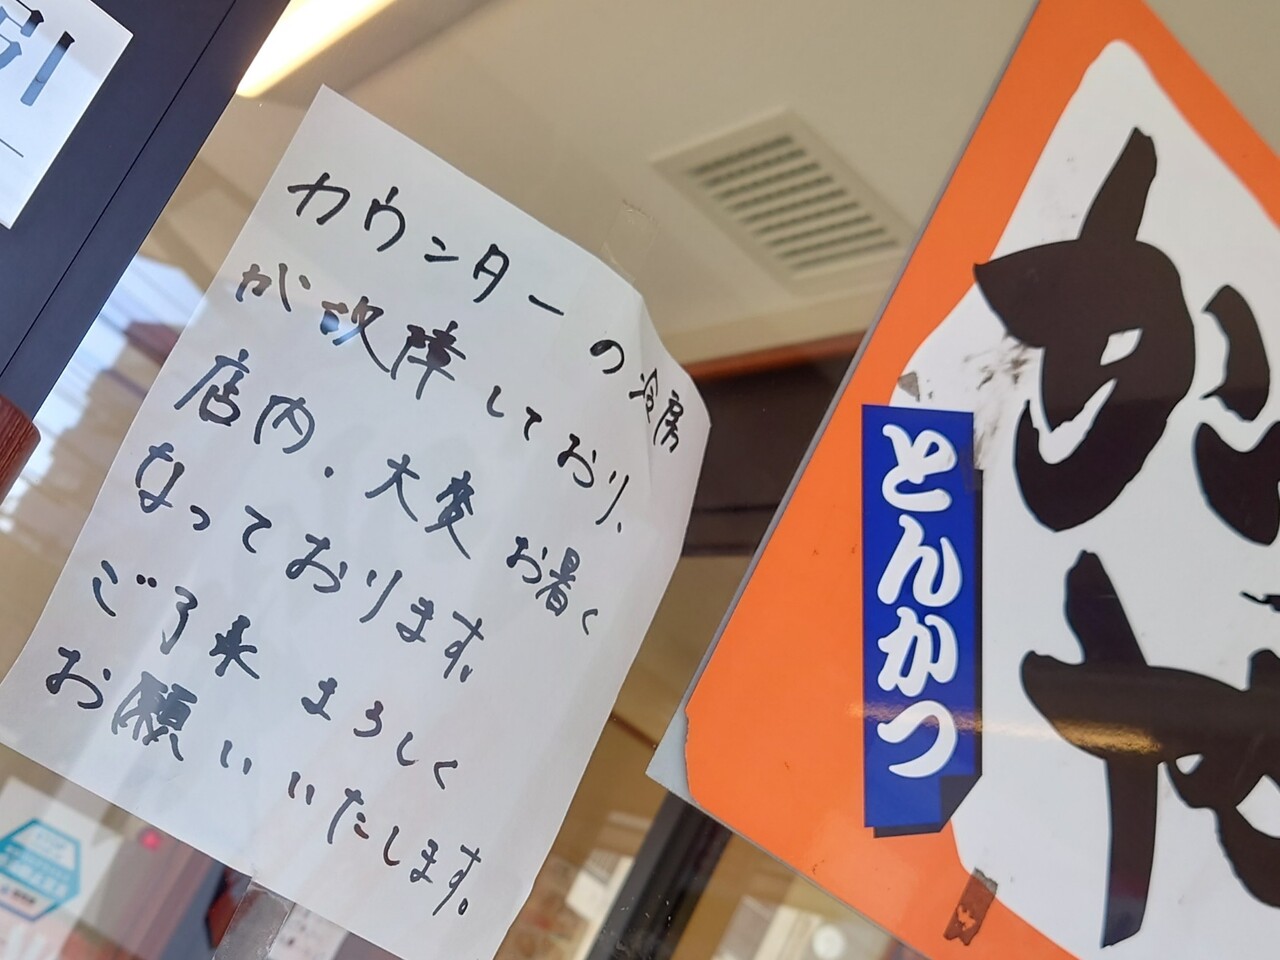 カウンターの冷房
が故障しており、
店内、大変お暑く
なっております。
ご了承よろしく
お願いいたします。
とんかつ
かつや